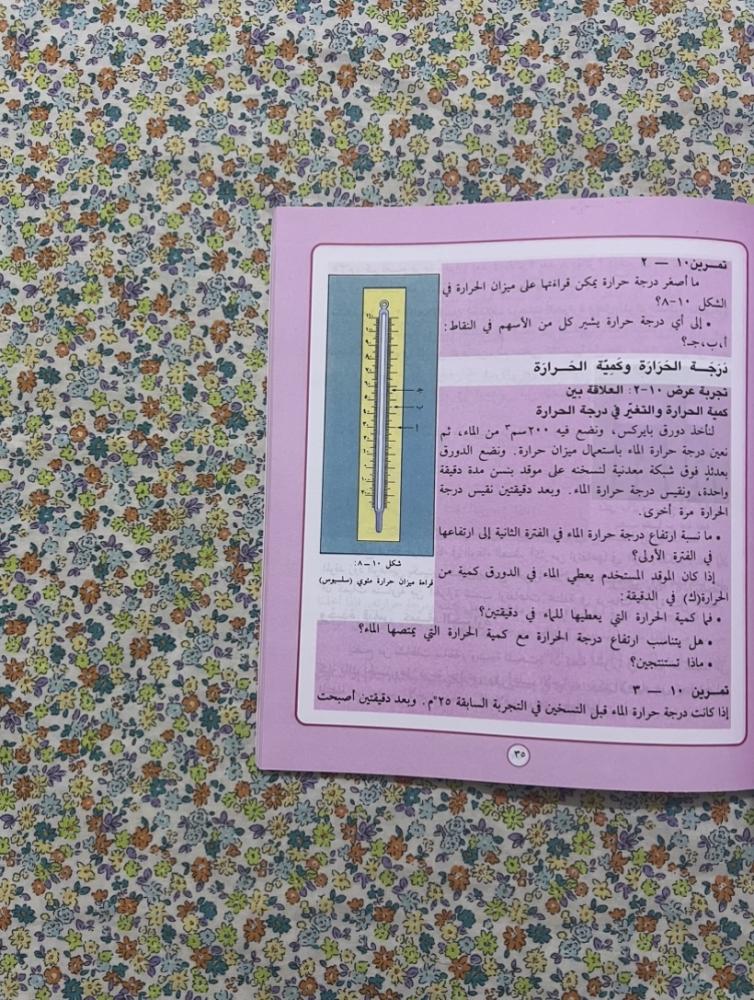 تمـرين ١٠ — ٢
ما أصغر درجة حرارة يمكن قراءتها على ميزان الحرارة في
الشكل ١٠-٨؟
• إلى أي درجة حرارة يشير كل من الأسهم في النقاط:
أ،ب،جـ؟
دَرَجَـة الحَرَارَة وكَمِيّـة الحَـرارَة
تجربة عرض ١٠-٢: العلاقة بين
كمية الحرارة والتغيّر في درجة الحرارة
لنأخذ دورق بايركس، ونضع فيه ٢٠٠سم٣ من الماء، ثم
نعين درجة حرارة الماء باستعمال ميزان حرارة. ونضع الدورق
بعدئذٍ فوق شبكة معدنية لنسخنه على موقد بنسن مدة دقيقة
واحدة، ونقيس درجة حرارة الماء. وبعد دقيقتين نقيس درجة
الحرارة مرة أخرى.
• ما نسبة ارتفاع درجة حرارة الماء في الفترة الثانية إلى ارتفاعها
في الفترة الأولى؟
إذا كان الموقد المستخدم يعطي الماء في الدورق كمية من
الحرارة(ك) في الدقيقة:
• فما كمية الحرارة التي يعطيها للماء في دقيقتين؟
• هل يتناسب ارتفاع درجة الحرارة مع كمية الحرارة التي يمتصها الماء؟
• ماذا تستنتجين؟
تمـرين ١٠ — ٣
إذا كانت درجة حرارة الماء قبل التسخين في التجربة السابقة ٢٥°م. وبعد دقيقتين أصبحت
جـ
ب
أ
شكل ١٠ — ٨:
قراءة ميزان حرارة مئوي (سلسيوس)
٣٥